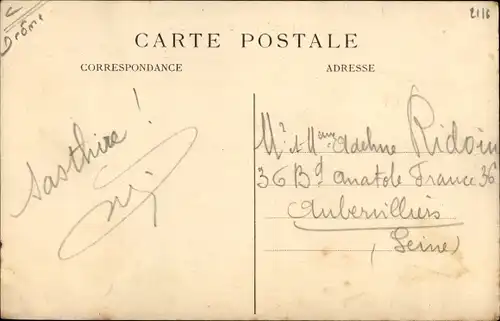 Drôme
21/6
CARTE POSTALE
CORRESPONDANCE
ADRESSE
Mr et Mme Adeline Ridoin
36 Bd Anatole France 36
Aubervilliers
(Seine)